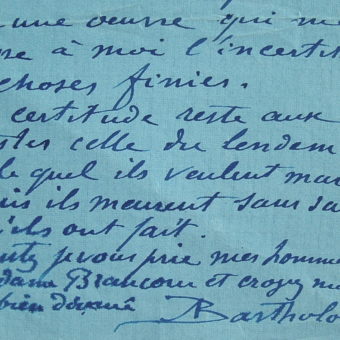 une œuvre qui me
à moi l'incertit
choses finies.
certitude reste aux
celle du lendem
lequel ils veulent mar
ils meurent sans sa
ils ont fait.
je vous prie mes homma
et croyez m
bien dévoué
Bartholo